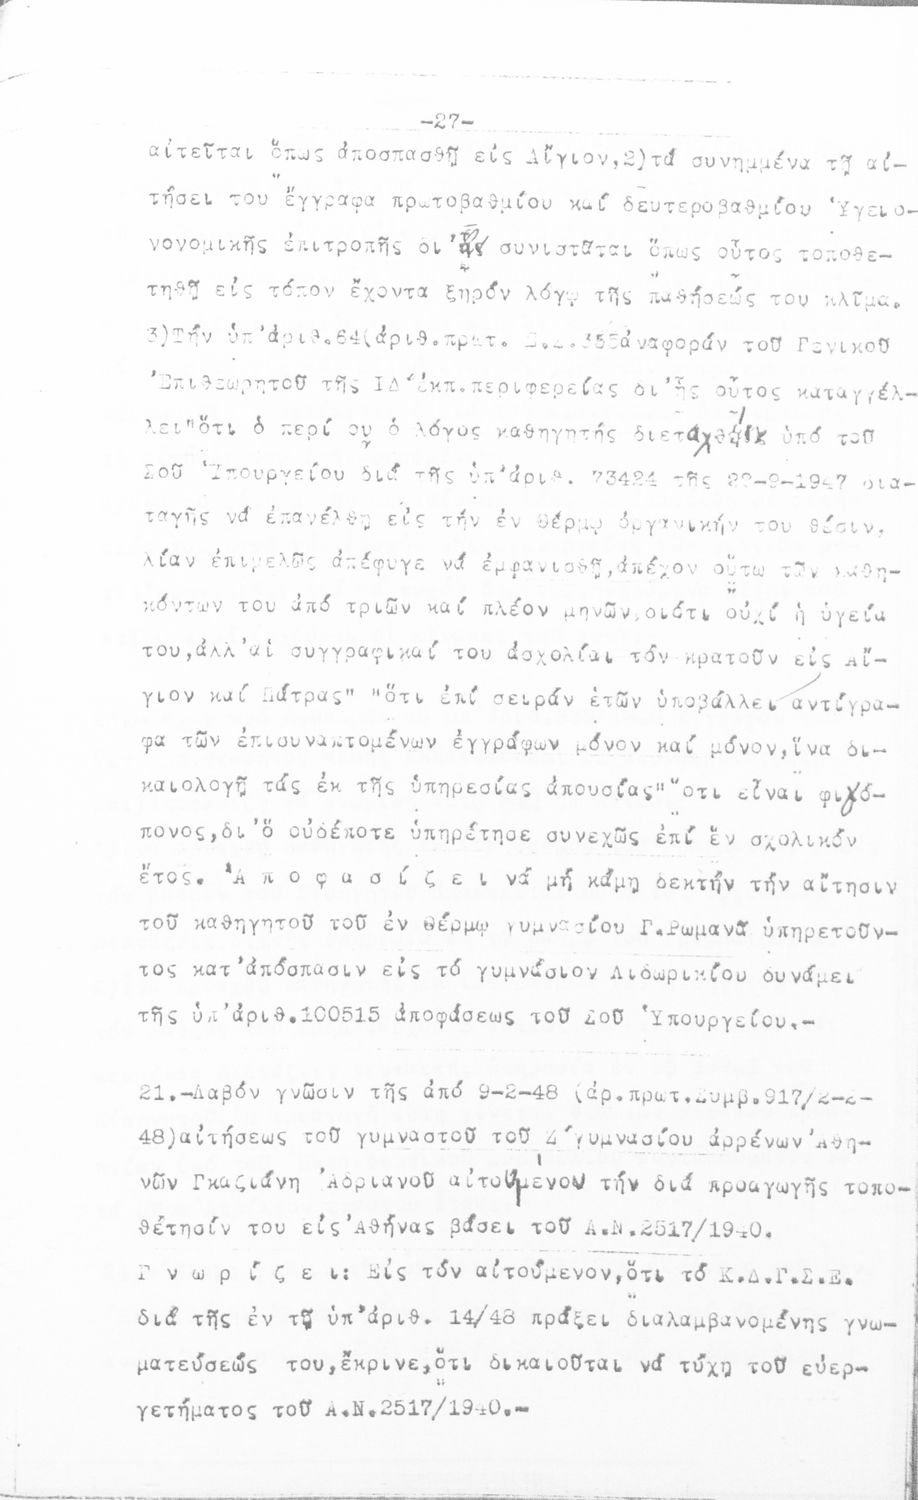 -27-
αἰτεῖται ὅπως ἀποσπασθῇ εἰς Αἴγιον,2)τά συνημμένα τῇ αἰ-
τήσει του ἔγγραφα πρωτοβαθμίου καί δευτεροβαθμίου Ὑγειο-
νονομικῆς ἐπιτροπῆς δι'ἧς συνιστᾶται ὅπως οὗτος τοποθε-
τηθῇ εἰς τόπον ἔχοντα ξηρόν λόγῳ τῆς παθήσεώς του κλῖμα.
3)Τήν ὑπ'ἀριθ.64(ἀριθ.πρωτ. 355 ἀναφοράν τοῦ Γενικοῦ
Ἐπιθεωρητοῦ τῆς ΙΔ'ἐκπ.περιφερείας δι'ἧς οὗτος καταγγέλ-
λει"ὅτι ὁ περί ου ὁ λόγος καθηγητής διεταχθη ὑπό τοῦ
Σοῦ Ὑπουργείου διά τῆς ὑπ'ἀριθ. 73424 τῆς 22-9-1947 δια-
ταγῆς νά ἐπανέλθῃ εἰς τήν ἐν Θέρμῳ ὀργανικήν του θέσιν,
λίαν ἐπιμελῶς ἀπέφυγε νά ἐμφανισθῇ,ἀπέχον οὕτω τῶν καθη-
κόντων του ἀπό τριῶν καί πλέον μηνῶν,διότι οὐχί ἡ ὑγεία
του,ἀλλ'αἱ συγγραφικαί του ἀσχολίαι τόν κρατοῦν εἰς Αἴ-
γιον καί Πάτρας" "ὅτι ἐπί σειράν ἐτῶν ὑποβάλλει ἀντίγρα-
φα τῶν ἐπισυναπτομένων ἐγγράφων μόνον καί μόνον,ἵνα δι-
καιολογῇ τάς ἐκ τῆς ὑπηρεσίας ἀπουσίας""οτι εἶναι φιγό-
πονος,δι'ὅ οὐδέποτε ὑπηρέτησε συνεχῶς ἐπί ἕν σχολικόν
ἔτος. Ἀ π ο φ α σ ί ζ ε ι νά μή κάμῃ δεκτήν τήν αἴτησιν
τοῦ καθηγητοῦ τοῦ ἐν Θέρμῳ γυμνασίου Γ.Ρωμανᾶ ὑπηρετοῦν-
τος κατ'ἀπόσπασιν εἰς τό γυμνάσιον Λιδωρικίου δυνάμει
τῆς ὑπ'ἀριθ.100515 ἀποφάσεως τοῦ Σοῦ Ὑπουργείου.-
21.-Λαβόν γνῶσιν τῆς ἀπό 9-2-48 (ἀρ.πρωτ.Συμβ.917/2-2-
48)αἰτήσεως τοῦ γυμναστοῦ τοῦ Ζ'γυμνασίου ἀρρένων Ἀθη-
νῶν Γκαζιάνη Ἀδριανοῦ αἰτούμένου τήν διά προαγωγῆς τοπο-
θέτησίν του εἰς Ἀθήνας βάσει τοῦ Α.Ν.2517/1940.
Γ ν ω ρ ί ζ ε ι: Εἰς τόν αἰτούμενον,ὅτι τό Κ.Δ.Γ.Σ.Ε.
διά τῆς ἐν τῇ ὑπ'ἀριθ. 14/48 πράξει διαλαμβανομένης γνω-
ματεύσεώς του,ἔκρινε,ὅτι δικαιοῦται νά τύχῃ τοῦ εὐερ-
γετήματος τοῦ Α.Ν.2517/1940.-